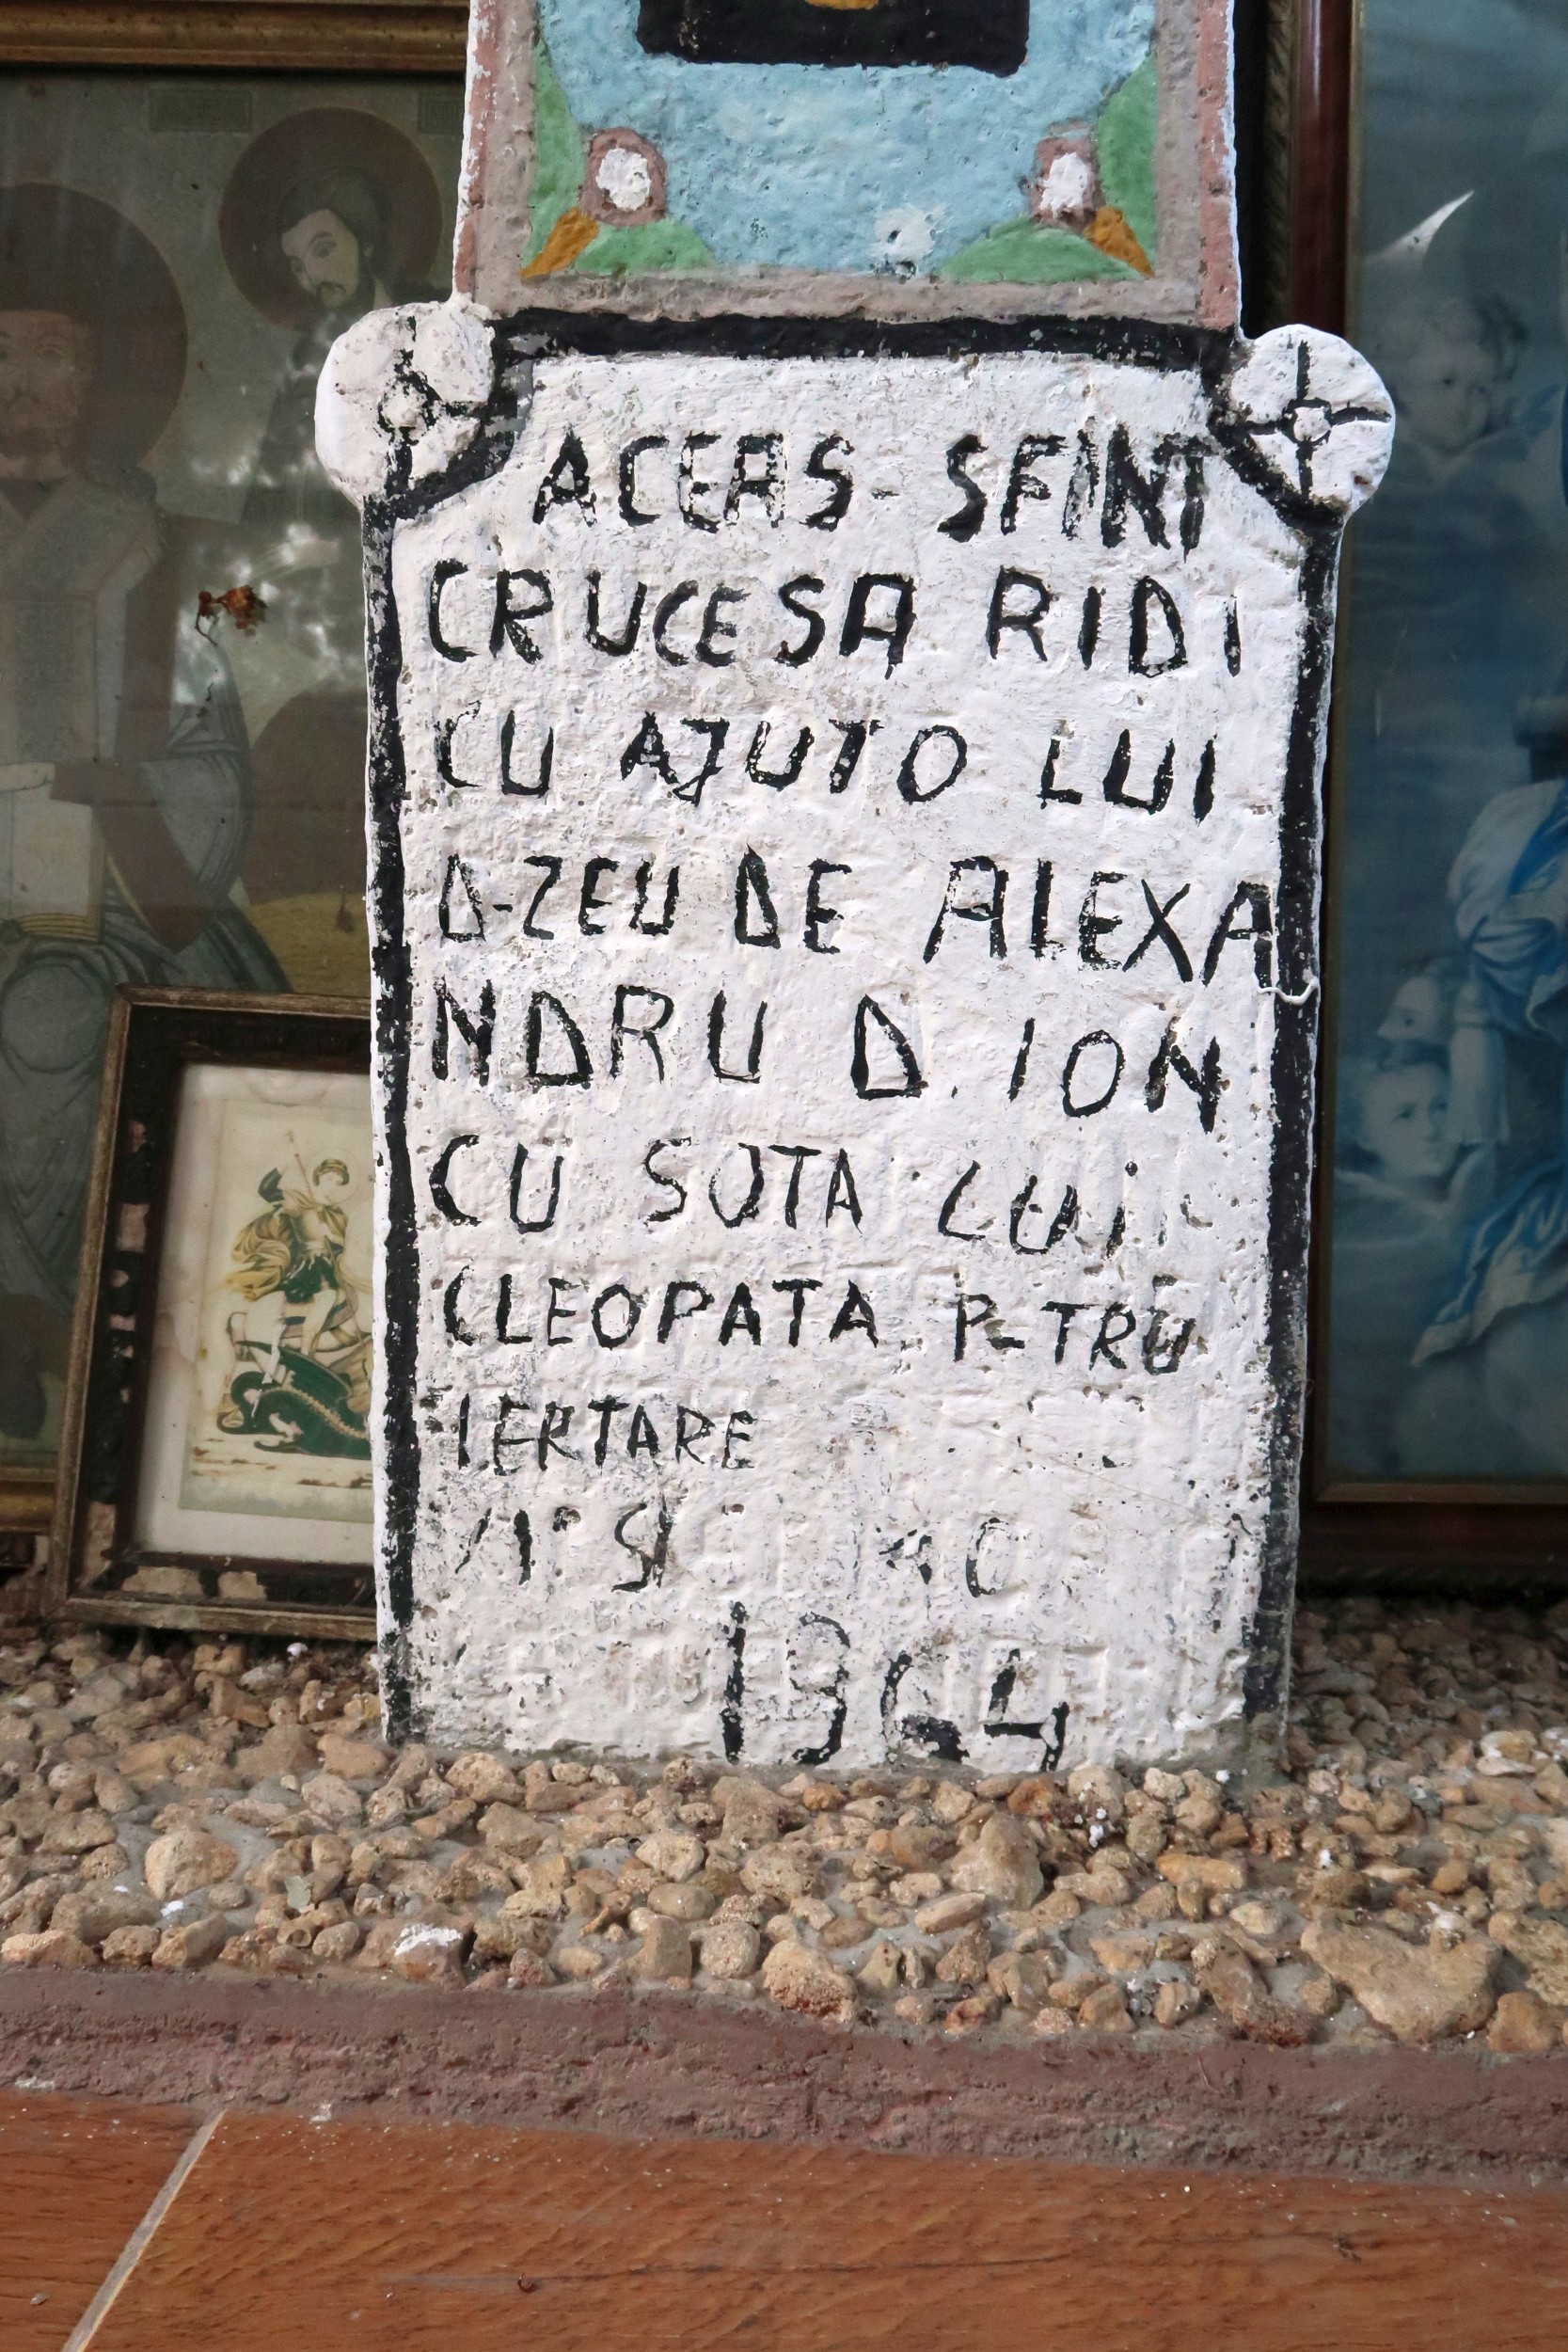 ACEAS- SFINT
CRUCE SA RIDI
CU AJUTO LUI
D-ZEU DE ALEXA
NDRU D. ION
CU SOTA LUI
CLEOPATA P-TRU
IERTARE
SI
1964